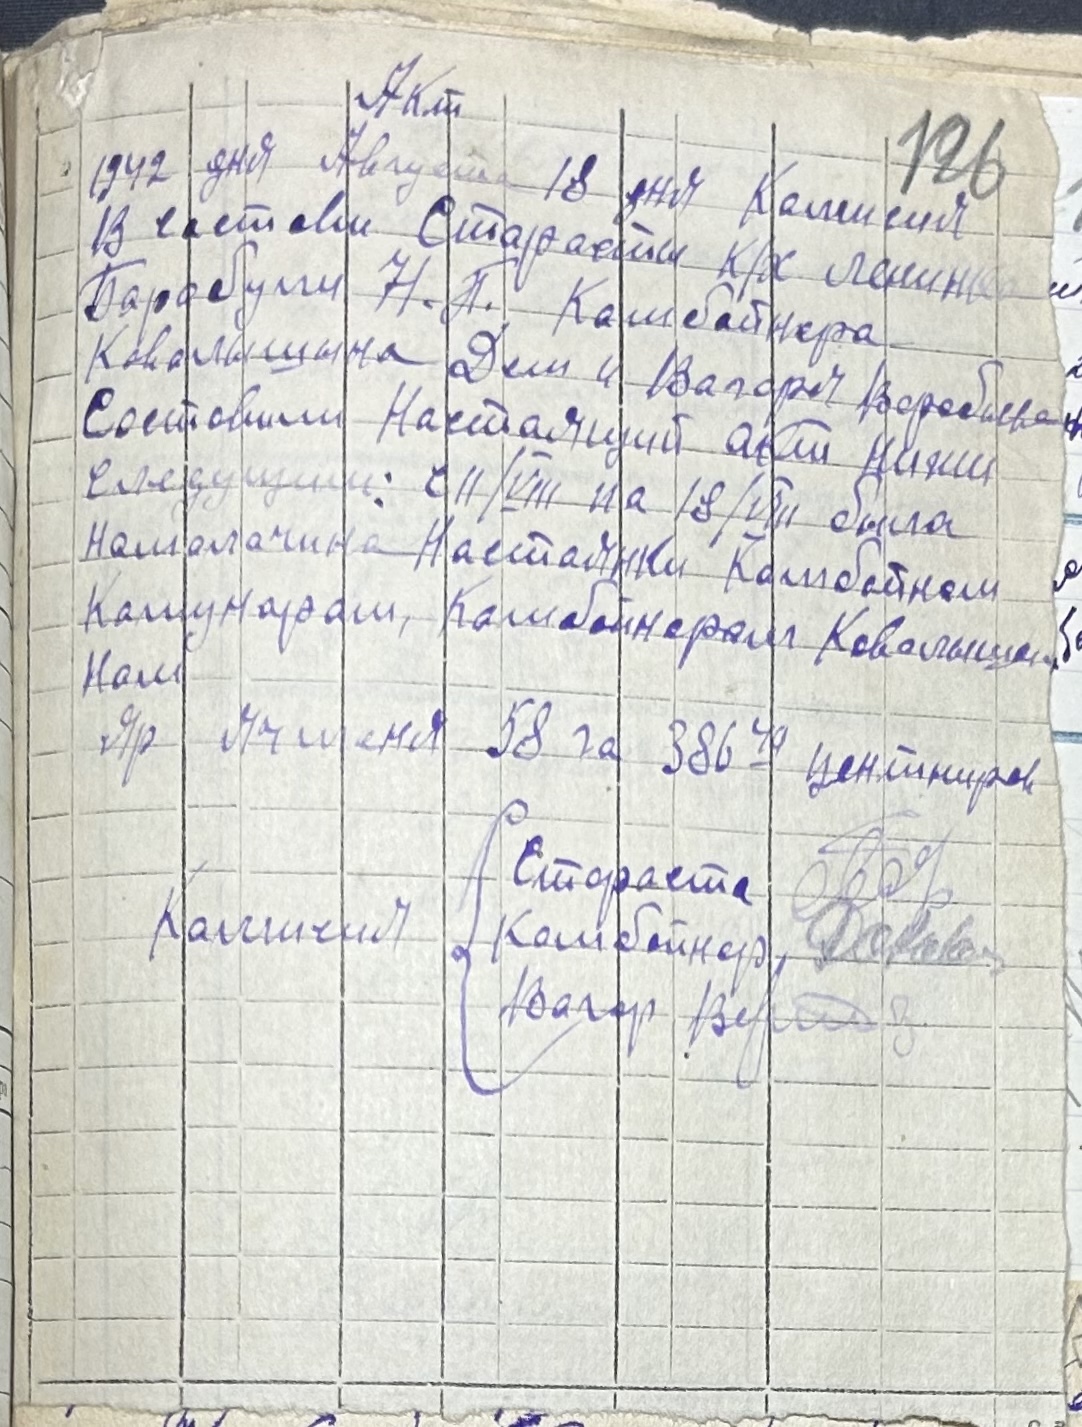 Акт
126
1942 дня Августа 18 дня Камисия
В состави Старасты к/х Ленина
Барабули Н.П. Камбайнера
Ковальшына Дем и Вагаря Воробьева
Составили Настаящий акт нижи
следущии: с 11/VIII на 18/VIII была
намалачина Настаянки Камбайнам
Камунарам, Камбайнерам Ковальшы
нам
Яр ячменя 58 га 386 40 центниров
Стараста
Камисия Камбайнер,
Вагар